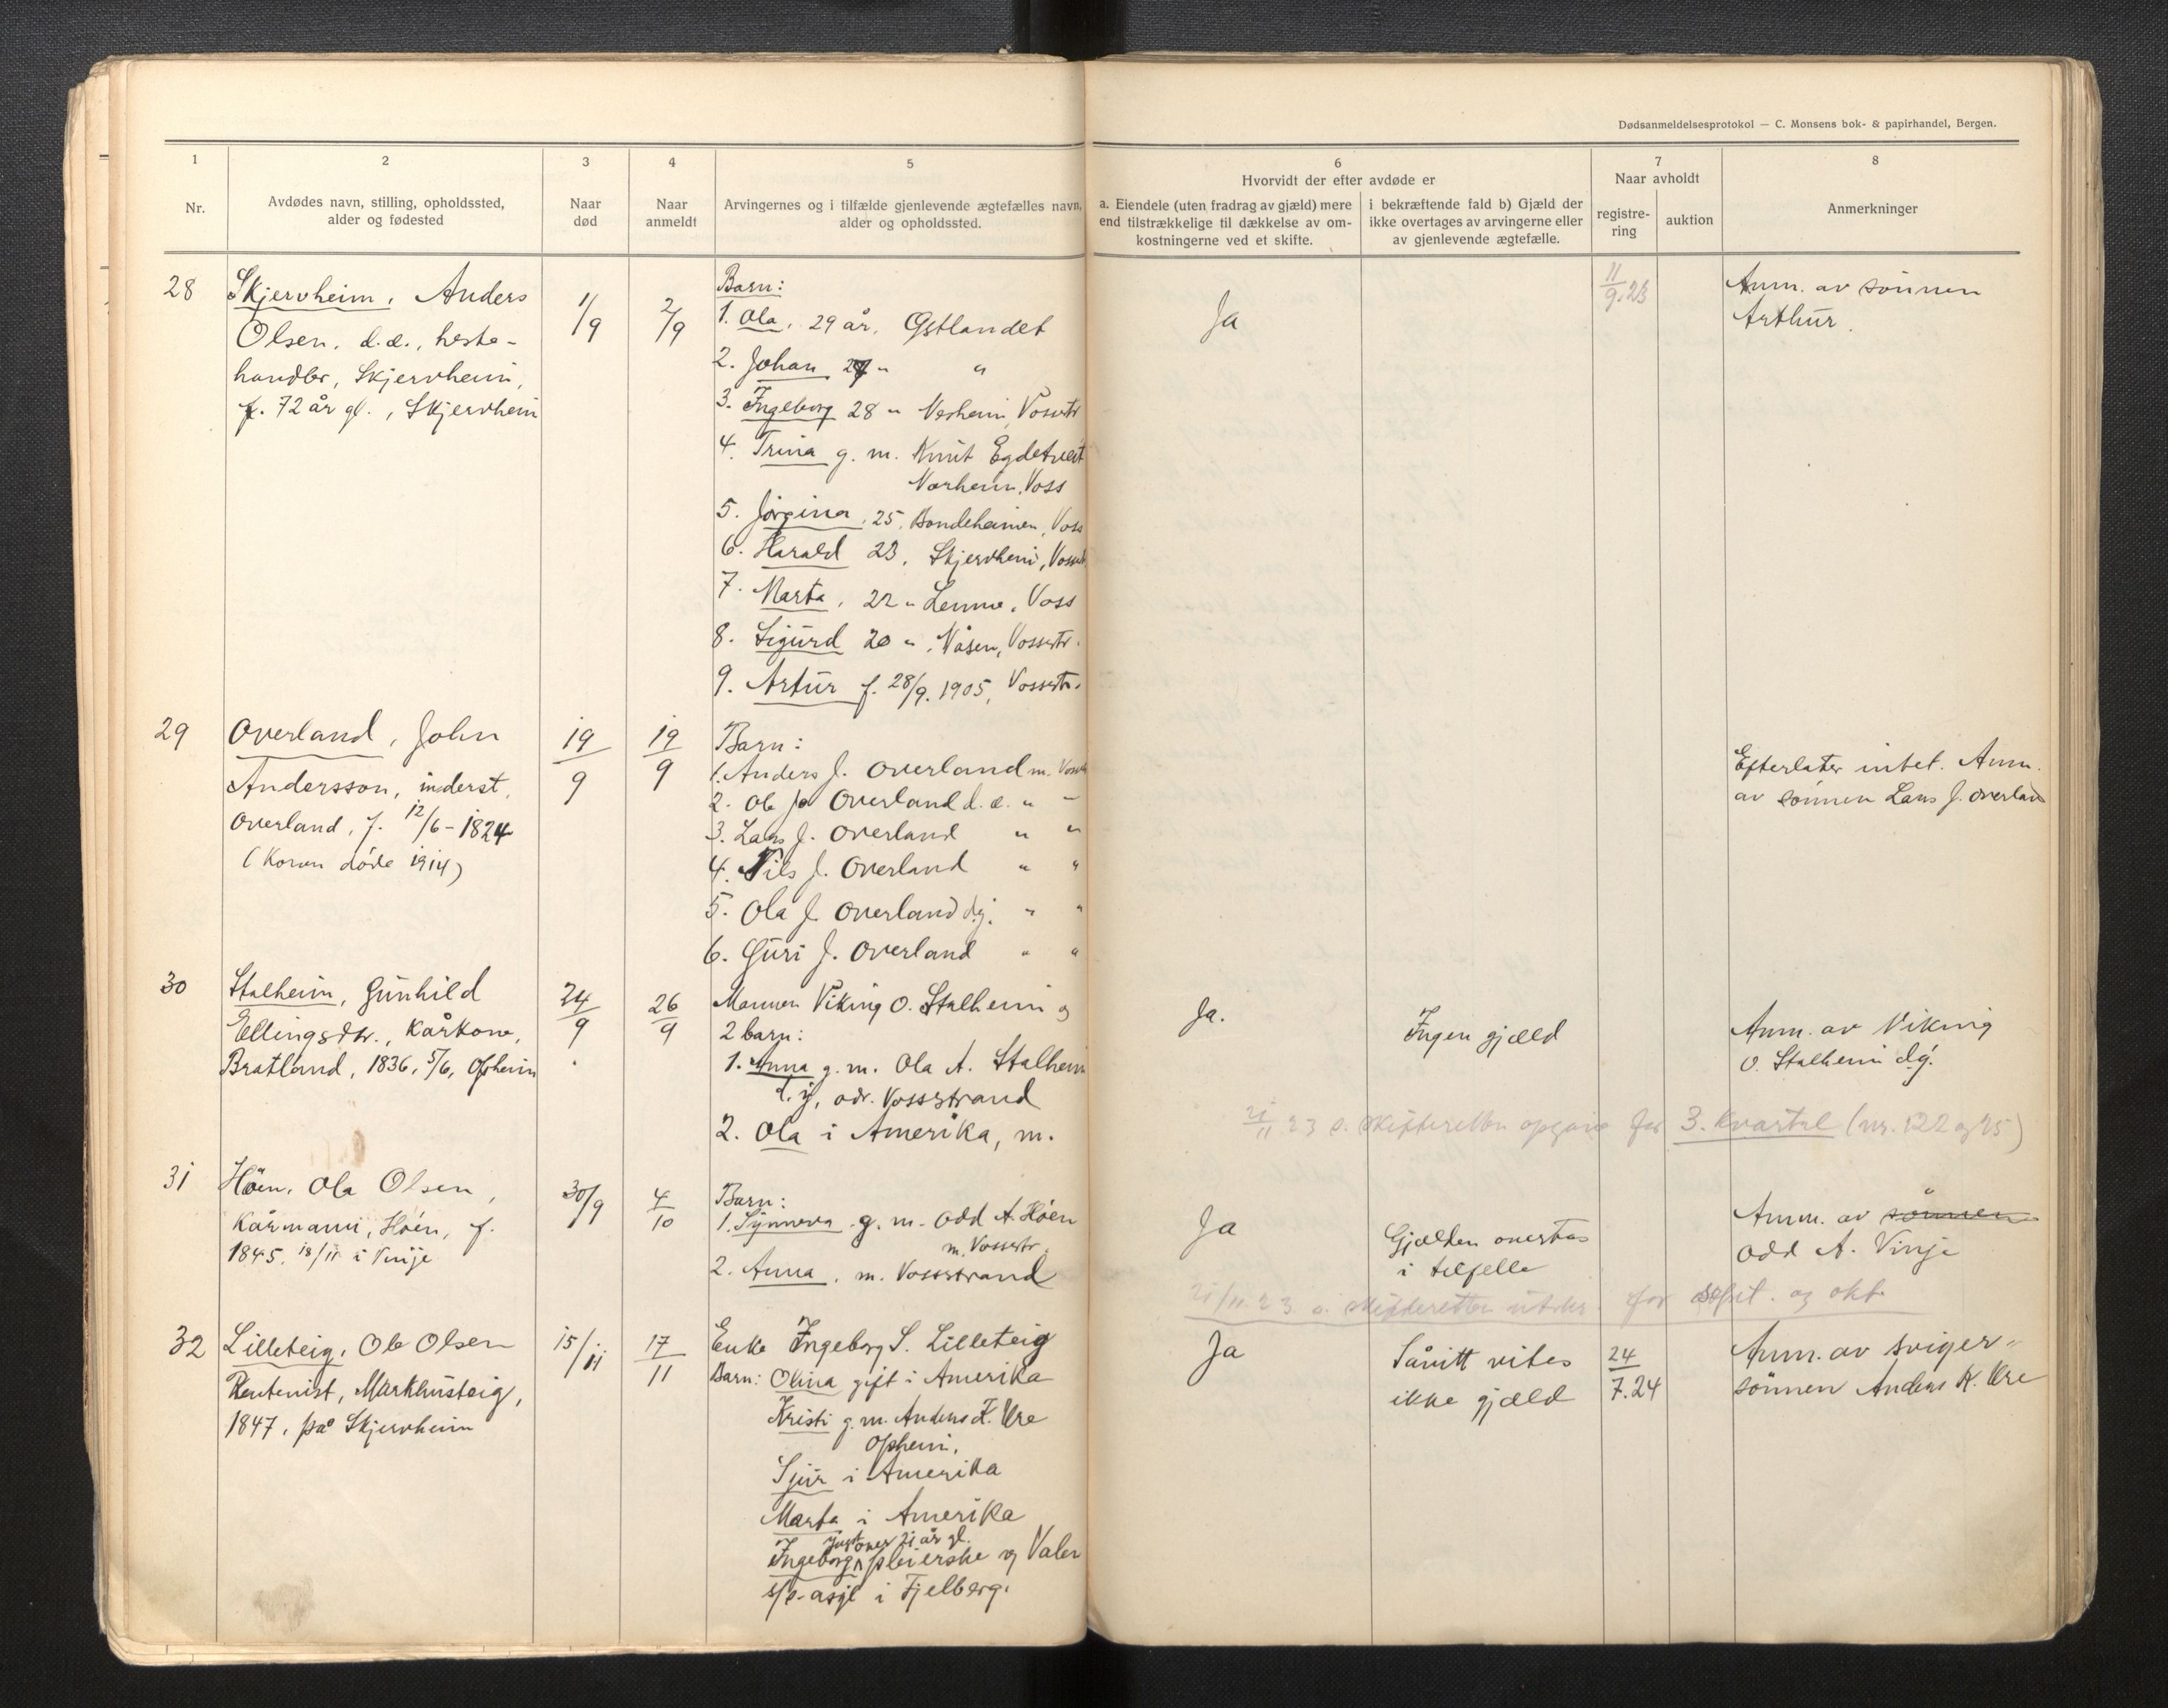 Dødsanmeldelsesprotokol — C. Monsens bok- & papirhandel, Bergen.
1
2
3
4
5
6
7
8
Nr.
Avdødes navn, stilling, opholdssted,
alder og fødested
Naar
død
Naar
anmeldt
Arvingernes og i tilfælde gjenlevende ægtefælles navn,
alder og opholdssted.
Hvorvidt der efter avdøde er
a. Eiendele (uten fradrag av gjæld) mere
end tilstrækkelige til dækkelse av om-
kostningerne ved et skifte.
i bekræftende fald b) Gjæld der
ikke overtages av arvingerne eller
av gjenlevende ægtefælle.
Naar avholdt
registre-
ring
auktion
Anmerkninger
28
Skjervheim, Anders
Olsen, d.æ., heste-
handler, Skjervheim,
f. 72 år gl., Skjervheim
1/9
2/9
Barn:
1. Ola, 29 år, Østlandet
2. Johan 27 " "
3. Ingeborg 28 " Vosstr
4. Trina g. m. Knut Egdetveit
Voss
5. Jørgina, 25, Bondeheimen, Voss
6. Harald 23, Skjervheim, Vosstr
7. Marta, 22 " Voss
8. Sigurd 20 " Vossestr.
9. Artur f. 28/9. 1905, Vossestr.
Ja
11/9.23
Anm. av sönnen
Arthur.
29
Overland, John
Andersson, inderst,
Overland, f. 12/6-1824
(Konen döde 1914)
19/9
19/9
Barn:
1. Anders J. Overland m. Vosstr
2. Ole J. Overland d.æ. " "
3. Lars J. Overland " "
4. Nils J. Overland " "
5. Ola J. Overland d.y. " "
6. Guri J. Overland " "
Efterlater intet. Anm.
av sönnen Lars J. Overland
30
Stalheim, Gunhild
Ellingsdtr., kårkone,
Bratland, 1836, 5/6, Opheim
24/9
26/9
Mannen Viking O. Stalheim og
2 barn:
1. Anna g. m. Ola A. Stalheim
d.y, adr. Vossestrand
2. Ola i Amerika, m.
Ja.
Ingen gjæld
Anm. av Viking
O. Stalheim d.y.
21/11 23 s. skifteretten opgave for 3. kvartal (nr. 122 og 25)
31
Höen, Ola Olsen,
Kårmann, Höen, f.
1845, 18/11 i Vinje
30/9
4/10
Barn:
1. Synneva g. m. Odd A. Höen
m. Vossestr.
2. Anna, m. Vossestrand
Ja
Gjælden overtas
i tilfelle
Anm. av sönnen
Odd A. Vinje
21/11.23 s. skifteretten utskr. for sept. og okt.
32
Lilleteig, Ole Olsen
Rentenist, Markhusteig,
1847, på Skjervheim
15/11
17/11
Enke Ingeborg S. Lilleteig
Barn: Olina gift i Amerika
Kristi g. m. Anders K. Ure
Opheim.
Sjur i Amerika
Marta i Amerika
just over 21 år gl.
Ingeborg pleierske ved Valen
s/s-asyl i Fjelberg.
Ja
Såvitt vites
ikke gjæld
24/7.24
Anm. av sviger-
sönnen Anders K. Ure